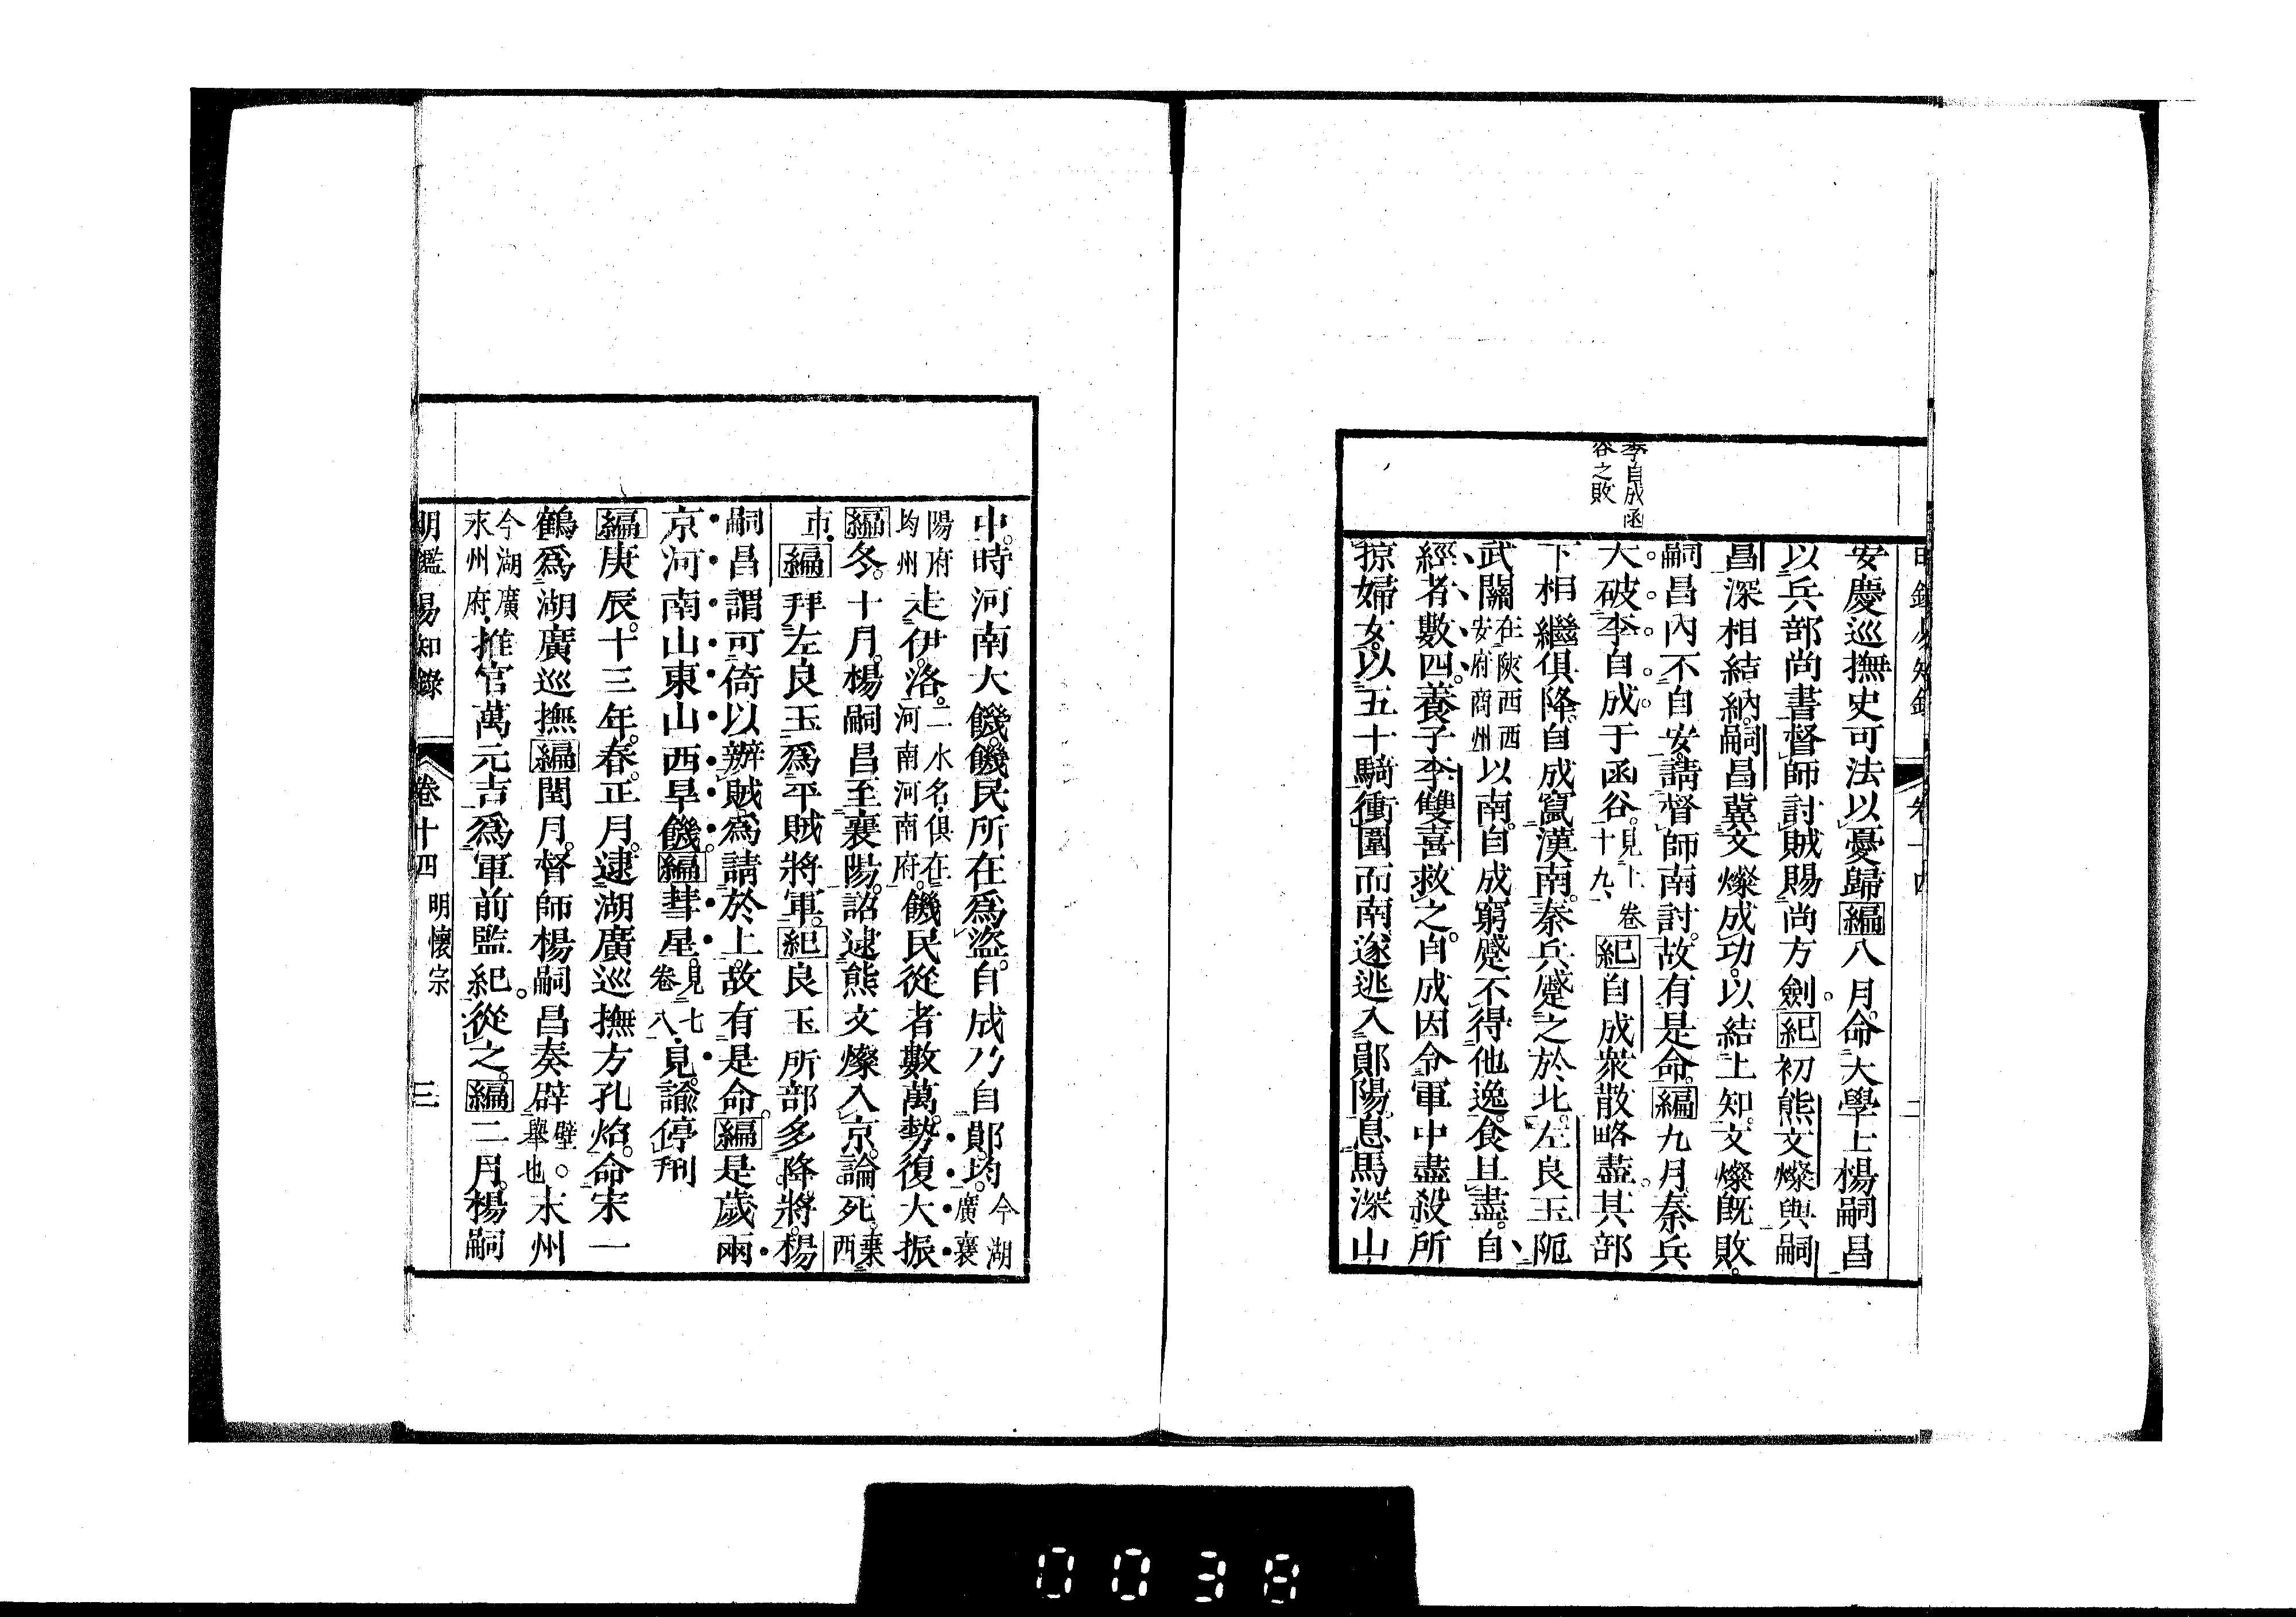 李自成函
谷之敗
安慶巡撫史可法以憂歸編八月命大學士楊嗣昌
以兵部尚書督師討賊賜尚方劍。紀初熊文燦與嗣
昌深相結納嗣昌冀文燦成功以結上知文燦既敗。
嗣昌內不自安請督師南討故有是命。編九月秦兵
大破李自成于函谷。見上卷十九、紀自成衆散略盡其部
下相繼俱降自成竄漢南。秦兵蹙之於北左良玉阨
武關在陝西西安府商州以南自成窮蹙不得他逸食且盡。自
經者數四養子李雙喜救之。自成因令軍中盡殺所
掠婦女以五十騎衝圍而南遂逃入鄖陽息馬深山
中。時河南大饑。饑民所在爲盜。自成乃自鄖均。今湖廣襄
陽府均州走伊洛。二水名俱在河南河南府。饑民從者數萬。勢復大振
編冬。十月。楊嗣昌至襄陽。詔逮熊文燦入京。論死。棄西
市。編拜左良玉爲平賊將軍。紀良玉所部多降將。楊
嗣昌謂可倚以辦賊爲請於上。故有是命。編是歲兩
京河南山東山西旱饑。編彗星見。見七卷八、諭停刑
編庚辰。十三年。春。正月。逮湖廣巡撫方孔炤。命宋一
鶴爲湖廣巡撫編閏月。督師楊嗣昌奏辟壁。舉也。永州
今湖廣永州府。推官萬元吉爲軍前監紀。從之。編二月。楊嗣
明鑑易知錄 卷十四 明懷宗 三